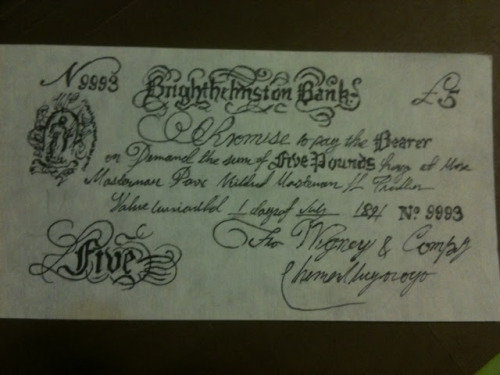 N 9993 Brighthelmston Bank. £5
I Promise to pay the Bearer
on Demand the sum of Five Pounds here or at Mess
Masterman Mildred Masterman
Value received 1 day of July 1841 No 9993
For Wigney & Compy
£Five